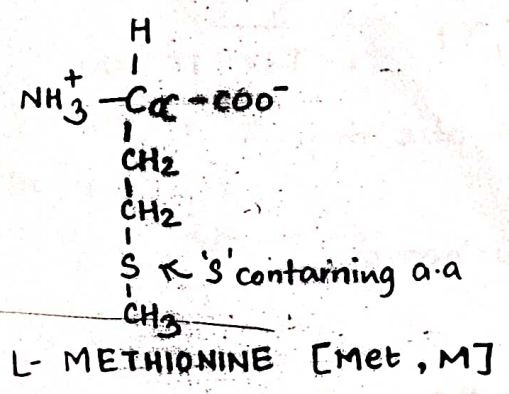 H
NH3+ - Cα - COO-
CH2
CH2
S ↖ 'S' containing a.a
CH3
L- METHIONINE [Met, M]